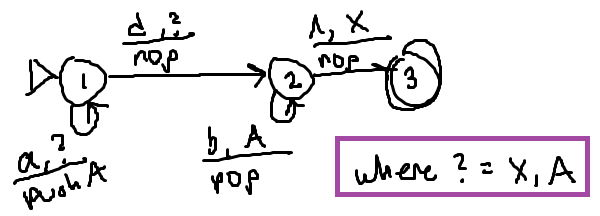 d, ?
nop
Λ, X
nop
1
2
3
a, ?
push A
b, A
pop
where ? = X, A